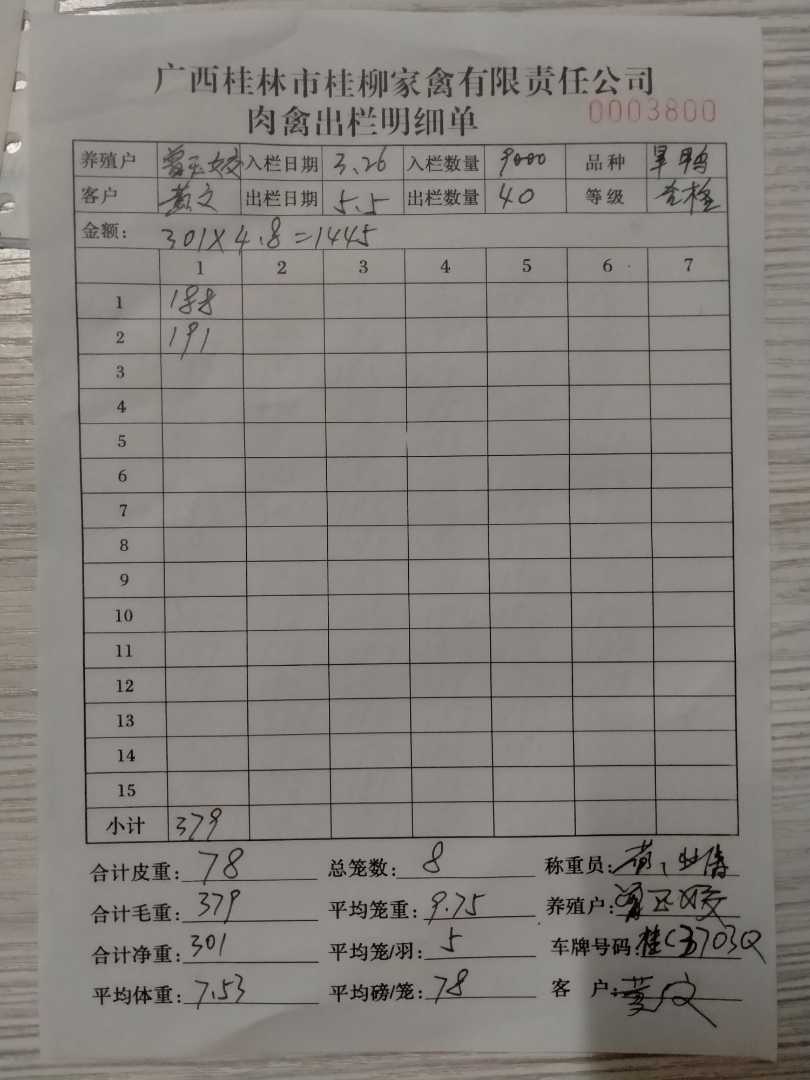 广西桂林市桂柳家禽有限责任公司
肉禽出栏明细单 0003800
养殖户 曾玉姣 入栏日期 3.26 入栏数量 9000 品种 旱鸭
客户 黄文 出栏日期 5.5 出栏数量 40 等级
金额: 301×4.8=1445
1 2 3 4 5 6 7
1 188
2 191
3
4
5
6
7
8
9
10
11
12
13
14
15
小计 379
合计皮重: 78 总笼数: 8 称重员:
合计毛重: 379 平均笼重: 9.75 养殖户: 曾玉姣
合计净重: 301 平均笼/羽: 5 车牌号码: 桂C
平均体重: 7.53 平均磅/笼: 78 客 户: 黄文